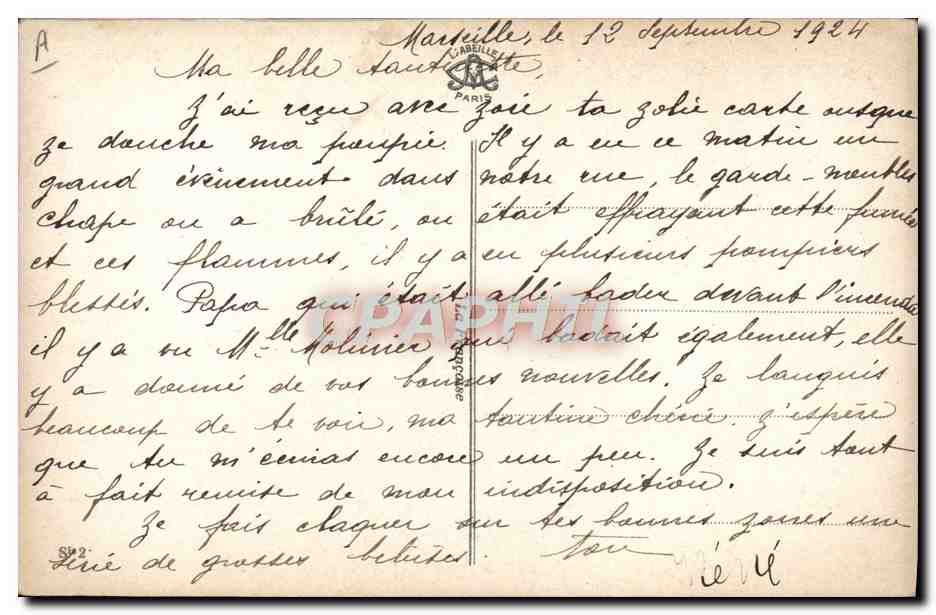 A
Marseille, le 12 Septembre 1924
L'ABEILLE
PARIS
Ma belle
Z'ai reçu avec zoie ta zolie carte ousque
ze douche ma poupée. Il y a eu ce matin un
grand évènement dans notre rue, le garde-meubles
Chape ou a brûlé, ou était effrayant cette fumée
et ces flammes, il y a eu plusieurs pompiers
blessés. Papa qui était allé bader devant l'incendie
il y a vu Mlle Molinier qui badait également, elle
y a donné de vos bonnes nouvelles. Ze languis
beaucoup de te voir, ma tantine chérie. z'espère
que tu m'écriras encore un peu. Ze suis tout
à fait remise de mon indisposition.
Ze fais claquer sur tes bonnes zoues une
série de grosses betises. ton
Sp2
La Française
CPAPHTI